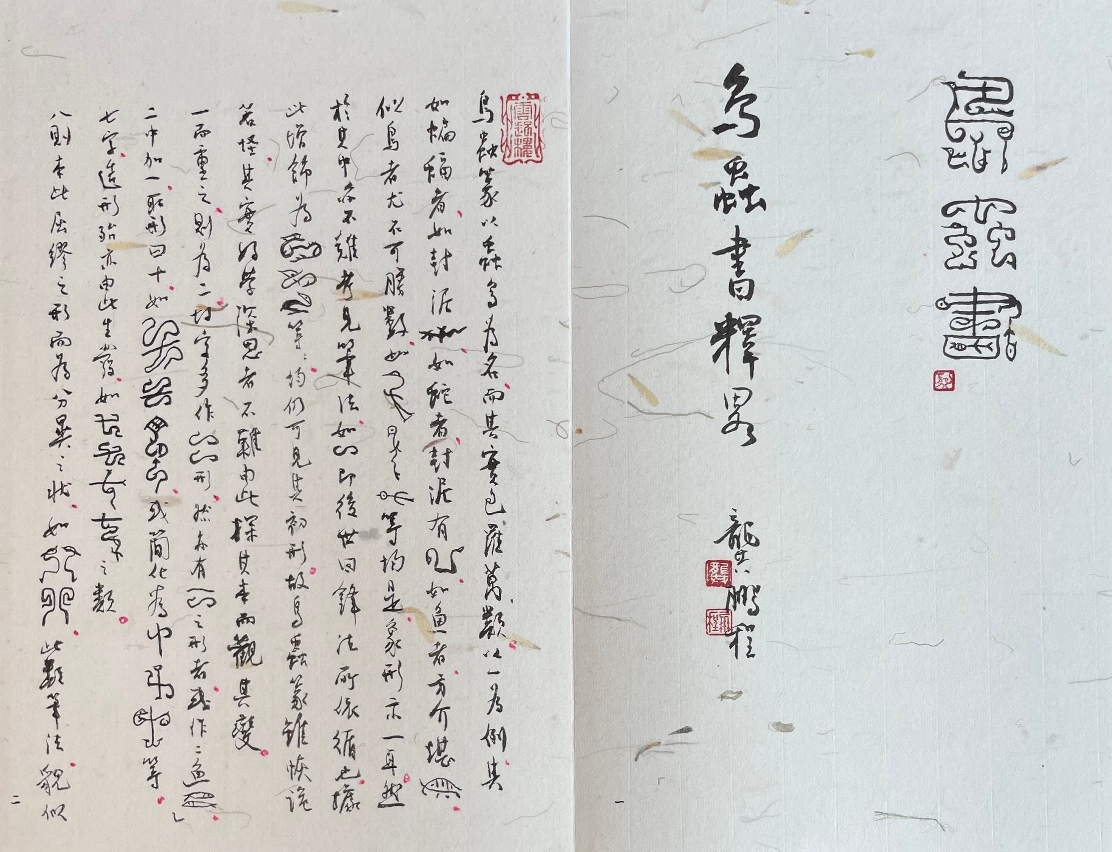 鳥蟲書
鳥蟲書釋畧
龔鵬程
一
鳥蟲篆以蟲鳥為名而其實包羅萬類以一為例其
如蝙蝠者如封泥 如蛇者封泥有 如魚者方介堪
似鳥者尤不可勝數如 等均是象形示一耳然
於其中亦不難考見筆法如 即後世回鋒法所依循也據
此增飾為 等均仍可見其初形故鳥蟲篆雖恢詭
若怪其實好學深思者不難由此探其本而觀其變
一而重之則為二故字多作 形然亦有 之形者或作二魚
二中加一取形曰十如 或簡化為 等
七字造形殆亦由此生發如 之類
八則本此屈繆之形而為分異之狀如 此類筆法貌似
二